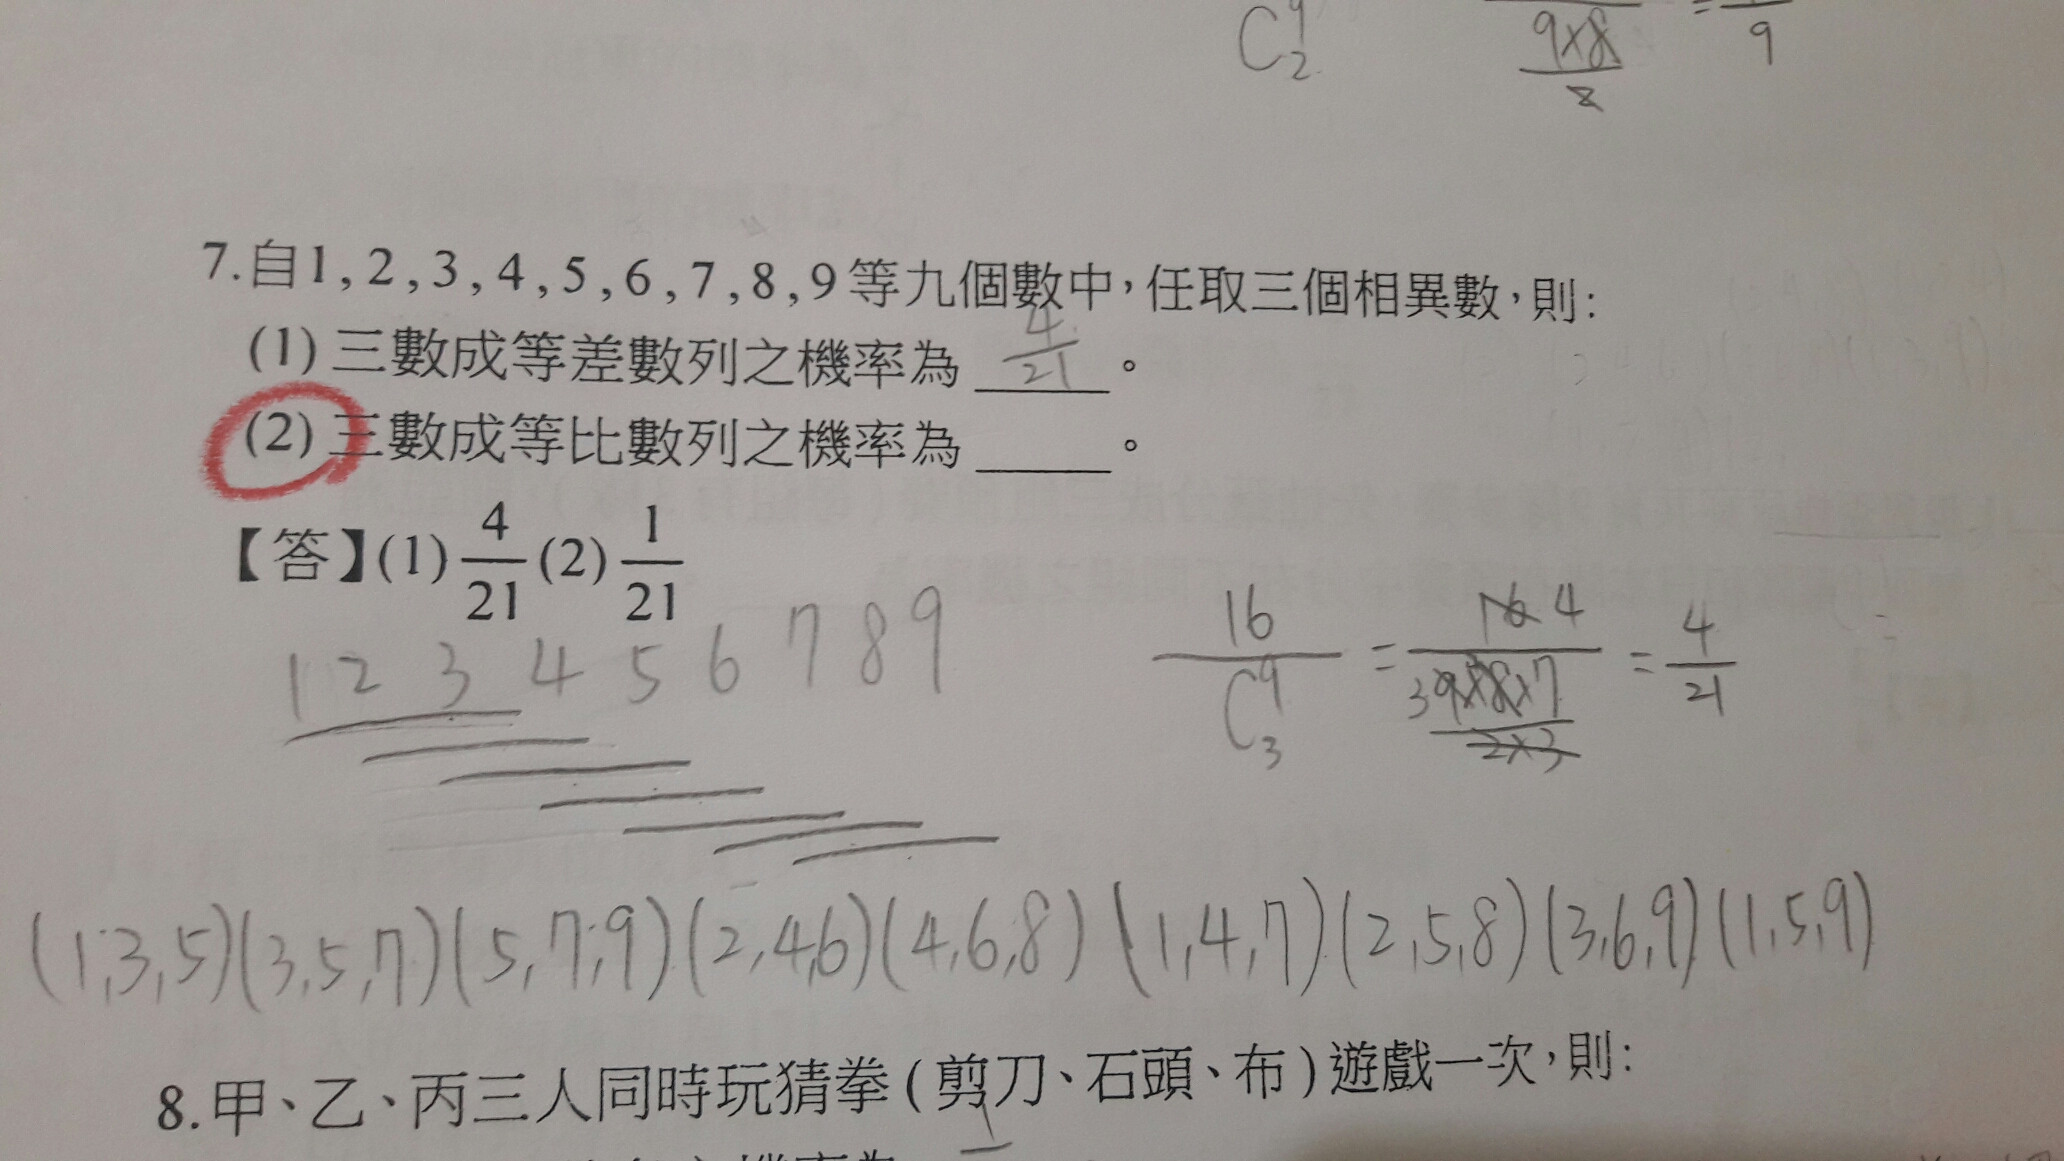 C⁹₂ 9×8/2 = 9
7.自1,2,3,4,5,6,7,8,9等九個數中,任取三個相異數,則:
(1)三數成等差數列之機率為 4/21 。
(2)三數成等比數列之機率為 _____ 。
【答】(1) 4/21 (2) 1/21
1 2 3 4 5 6 7 8 9
16/C⁹₃ = 16 4/3 9×8×7/2×3 = 4/21
(1,3,5)(3,5,7)(5,7,9)(2,4,6)(4,6,8)(1,4,7)(2,5,8)(3,6,9)(1,5,9)
8.甲、乙、丙三人同時玩猜拳(剪刀、石頭、布)遊戲一次,則: